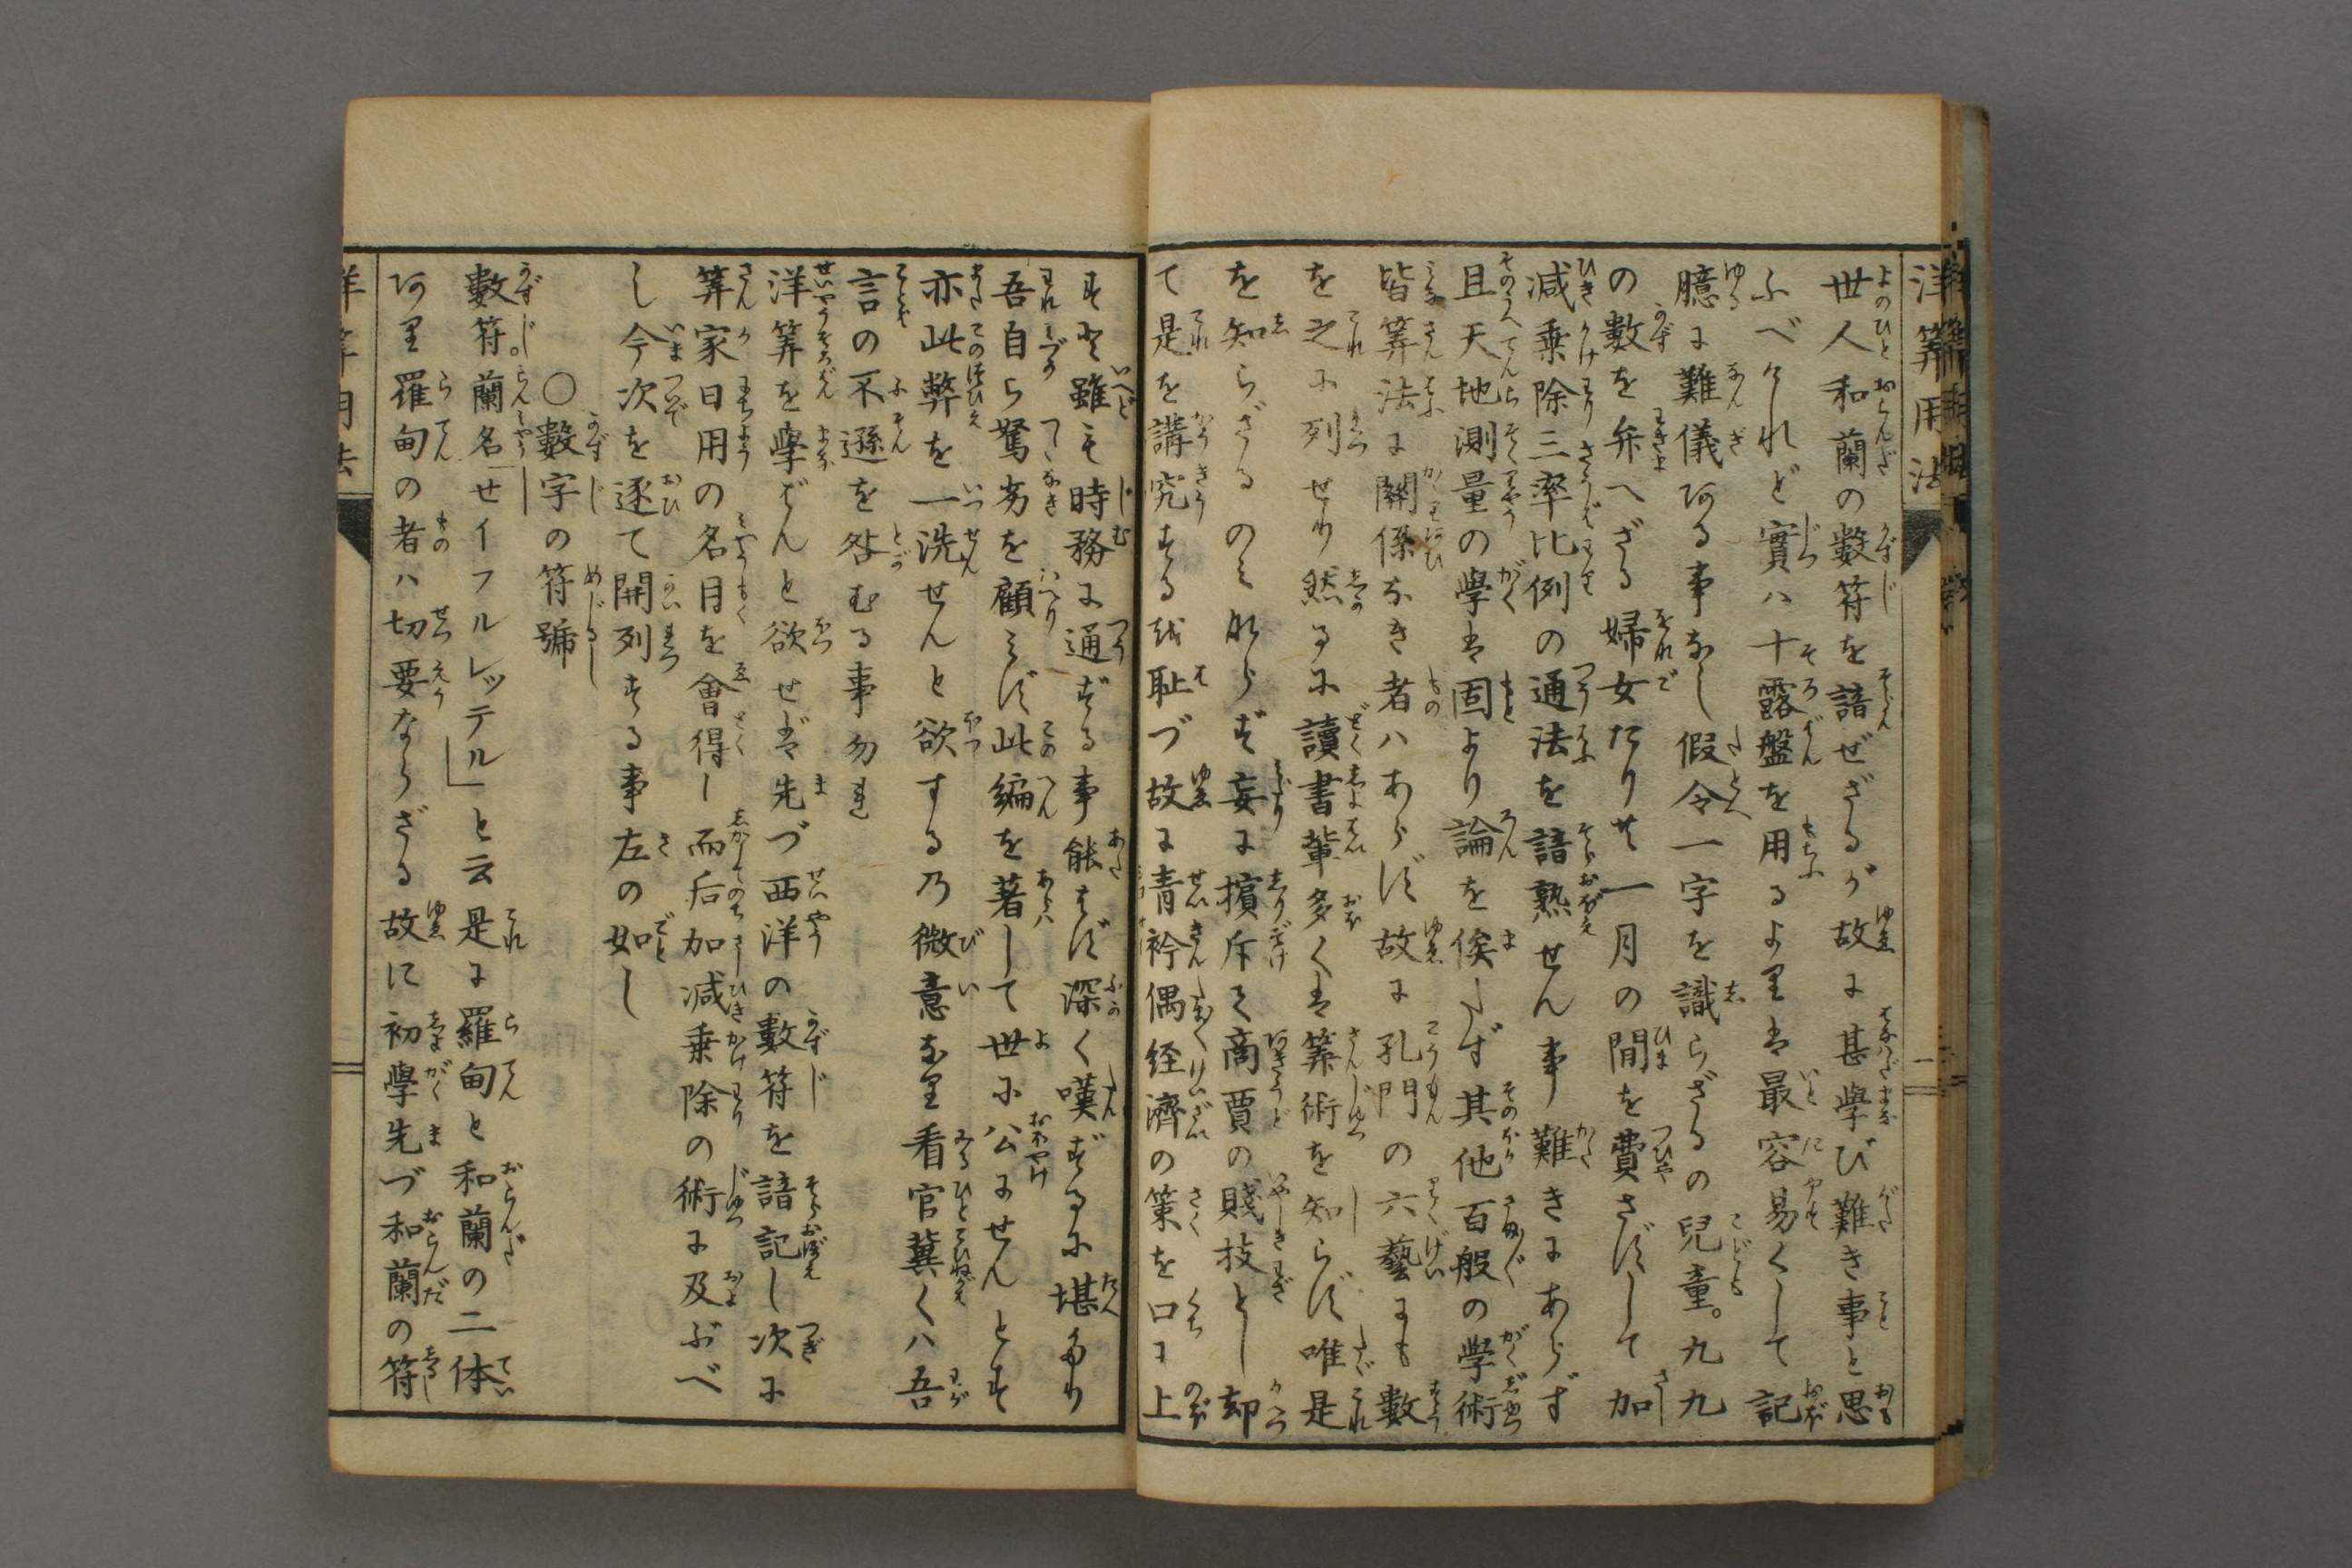 洋筭用法
世人和蘭の數符を諳ぜざるが故に甚學び難き事と思
ふべけれど實ハ十露盤を用るより𛂞最容易くして記
臆に難儀ある事なし假令一字を識らざるの兒童。九九
の數を弁へざる婦女たりとも一月の間を費さずして加
減乗除三率比例の通法を諳熟せん事難きにあらず
且天地測量の學は固より論を俟たず其他百般の学術
皆筭法に關係なき者ハあらず故に孔門の六藝にも數
を之に列せり然るに讀書輩多くは筭術を知らず唯是
を知らざるのみならず妄に擯斥て商賈の賤技とし却
て是を講究するを恥づ故に青衿偶経濟の策を口に上
すと雖も時務に通ずる事能はず深く嘆ずるに堪たり
吾自ら駑劣を顧みず此編を著して世に公にせんとす
亦此弊を一洗せんと欲する乃微意なり看官冀くハ吾
言の不遜を咎むる事勿れ
洋筭を學ばんと欲せば先づ西洋の數符を諳記し次に
筭家日用の名目を會得し而后加減乗除の術に及ぶべ
し今次を逐て開列する事左の如し
〇數字の符號
數符。蘭名「セイフルレッテル」と云是に羅甸と和蘭の二体
あり羅甸の者ハ切要ならざる故に初學先づ和蘭の符
洋筭用法